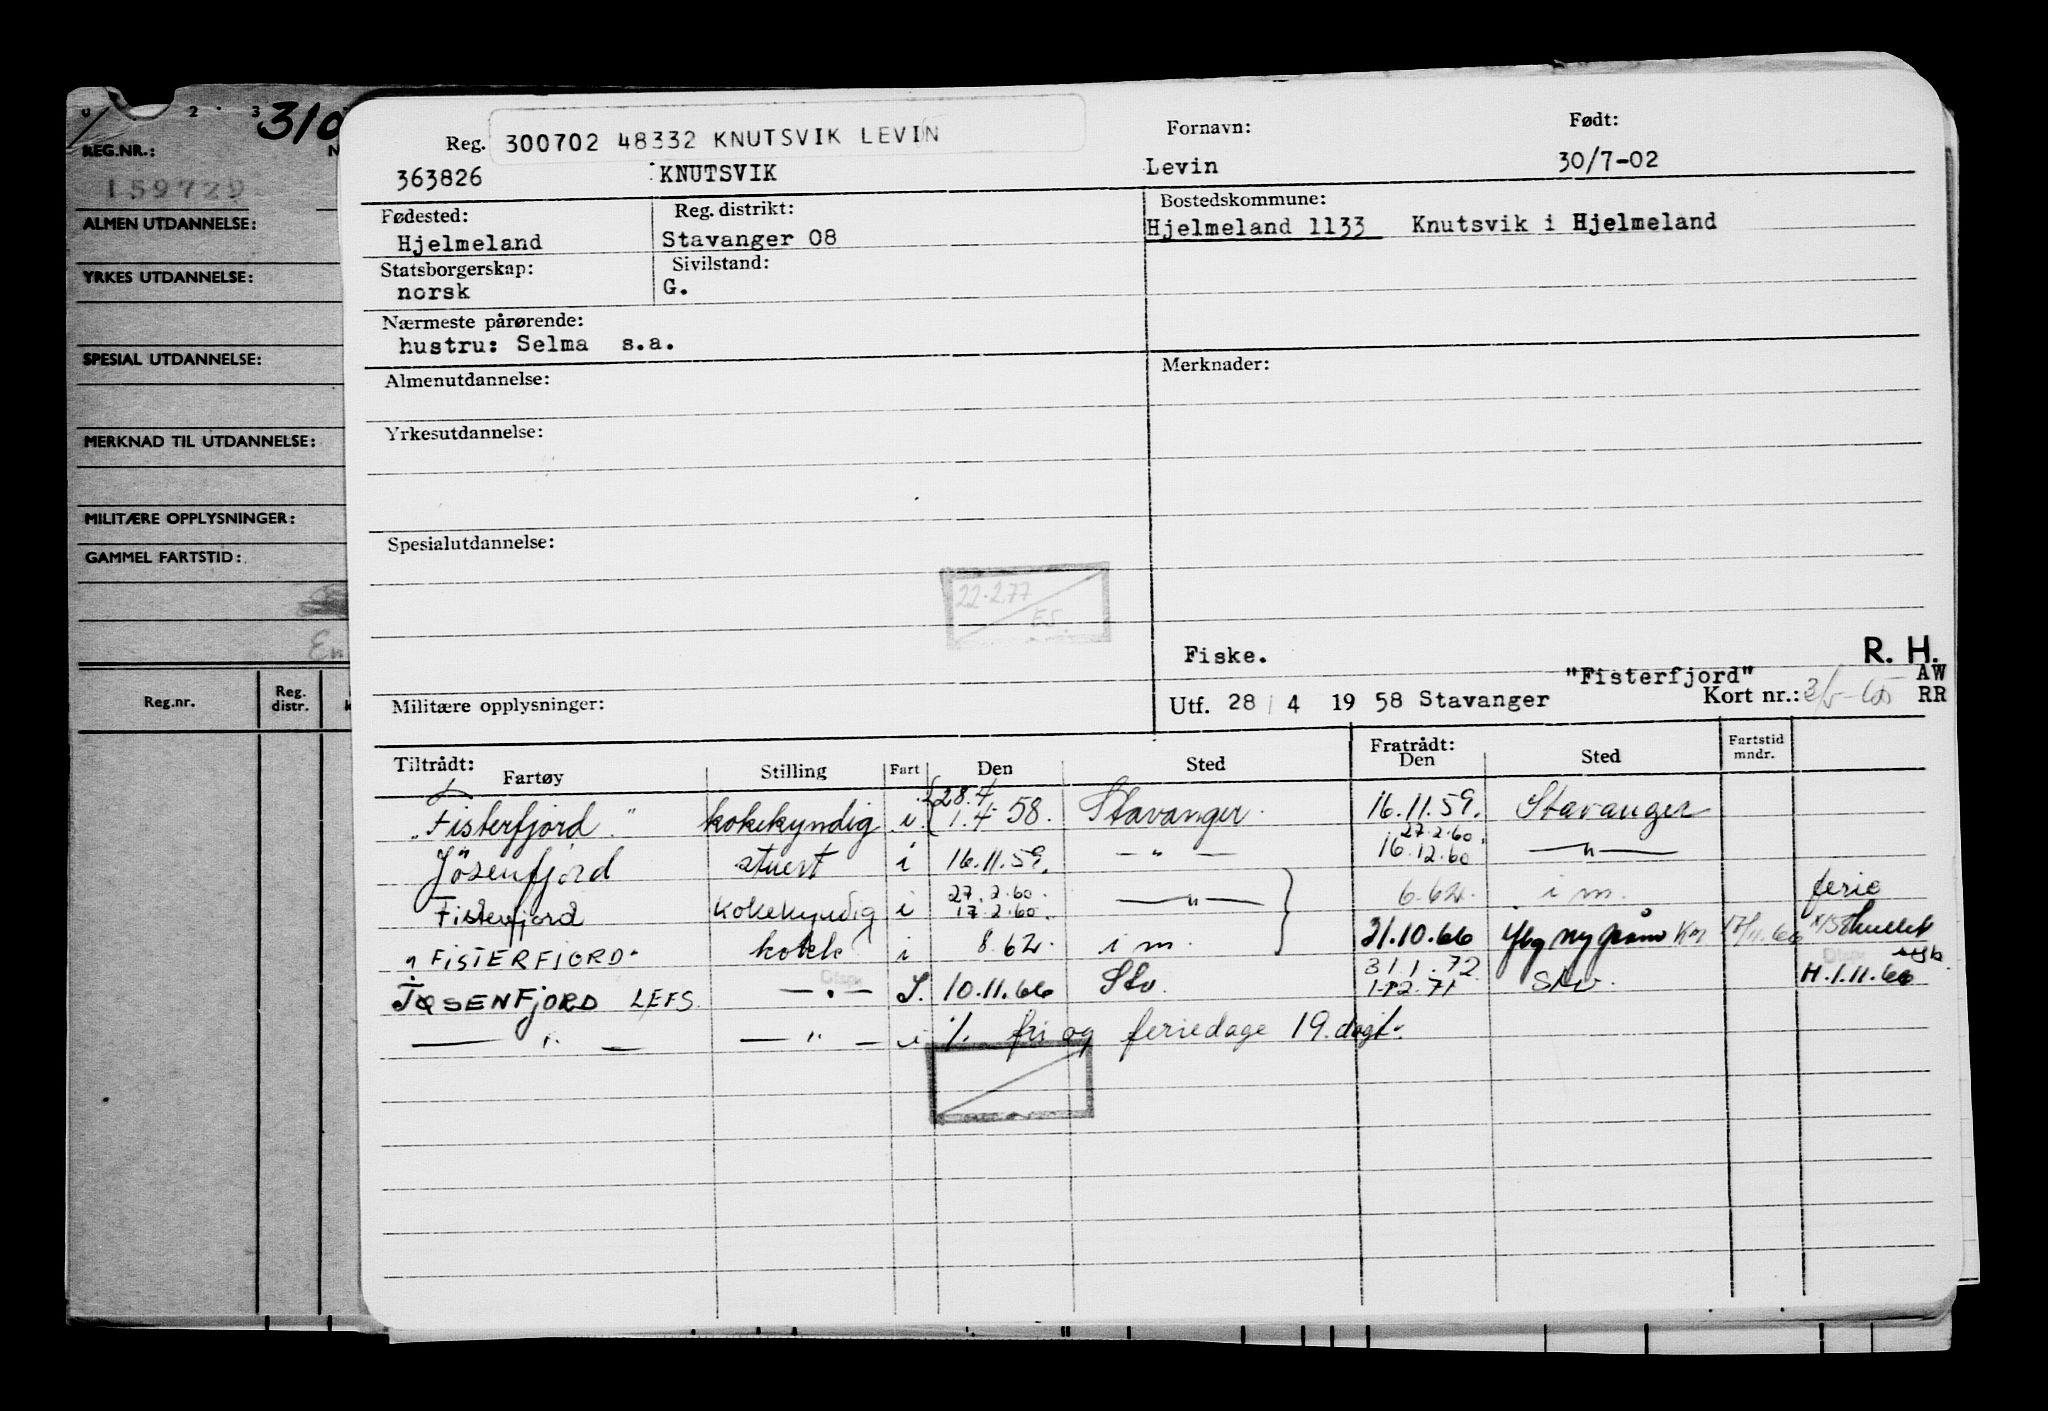 0 2 3 310
REG.NR.: N
159729
ALMEN UTDANNELSE:
YRKES UTDANNELSE:
SPESIAL UTDANNELSE:
MERKNAD TIL UTDANNELSE:
MILITÆRE OPPLYSNINGER:
GAMMEL FARTSTID:
En
Reg.nr. Reg. distr. k
Reg. 300702 48332 KNUTSVIK LEVIN Fornavn: Født:
363826 KNUTSVIK Levin 30/7-02
Fødested: Reg. distrikt: Bostedskommune:
Hjelmeland Stavanger 08 Hjelmeland 1133 Knutsvik i Hjelmeland
Statsborgerskap: Sivilstand:
norsk G.
Nærmeste pårørende:
hustru: Selma s.a.
Almenutdannelse: Merknader:
Yrkesutdannelse:
Spesialutdannelse:
22.2.77
ES.
Fiske. R. H.
"Fisterfjord" AW
Militære opplysninger: Utf. 28/4 1958 Stavanger Kort nr.: RR
Tiltrådt: Fratrådt: Fartstid
Fartøy Stilling Fart Den Sted Den Sted mndr.
28.4
"Fisterfjord" kokekyndig i 1.4 58. Stavanger. 16.11.59. Stavanger
27.2.60
Jösenfjord stuert i 16.11.59. — " — 16.12.60 — " —
27.2.60.
Fisterfjord kokekyndig i 17.2.60. — " — 6.62. i m. ferie
" FISTERFJORD" kokk i 8.62. i m. 31.10.66
31.1.72
JØSENFJORD LEFS. — " — S. 10.11.66 Stv. 1.12.71 Stv. H.1.11.66
— " — — " — i % fri og feriedage 19. dagt.